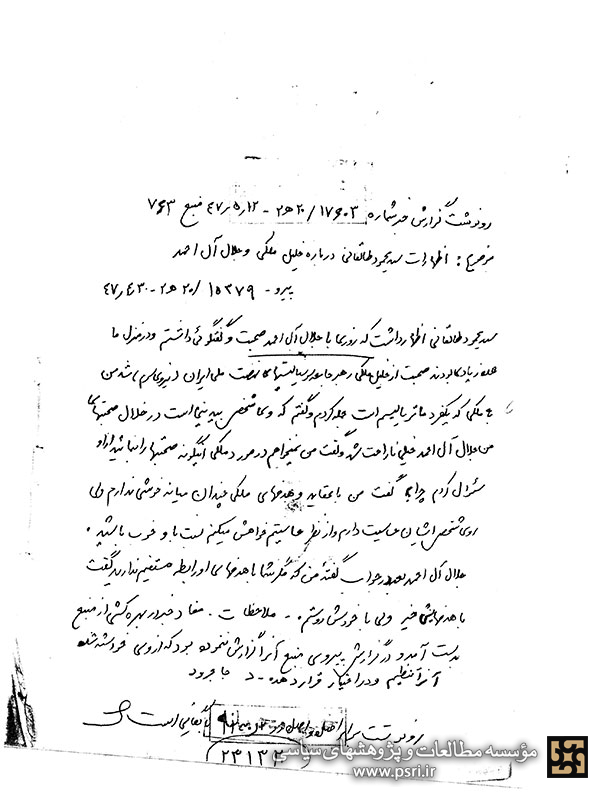 رونوشت گزارش خبر شماره ۱۷۶۰۳/ ۲۰ ه‍ ۲ - ۱۲ر۵ر۴۷ منبع ۷۶۳
موضوع: اظهارات سید محمود طالقانی درباره خلیل ملکی و جلال آل احمد
پیرو - ۱۵۳۷۹/ ۲۰ ه‍ ۲ - ۳۰ر۴ر۴۷
سید محمود طالقانی اظهار داشت که روزی با جلال آل احمد صحبت و گفتگوئی داشتم و در منزل ما
عده زیادی بودند صحبت از خلیل ملکی رهبر جامعه سوسیالیستهای نهضت ملی ایران باشد من
ملکی که یکفرد ماتریالیسم است حمله کردم و گفتم که شخص است در خلال صحبتهای
من جلال آل احمد خیلی ناراحت شد و گفت من نمیخواهم در مورد ملکی اینگونه صحبتها را از او
سئوال کردم چرا گفت من با عقاید و هدفهای ملکی چندان میانه خوشی ندارم ولی
روی شخص ایشان حساسیت دارم و از نظر خواهش میکنم نسبت باو خوب باشید.
جلال آل احمد در جواب گفته من که مگر شما با هدفهای او رابطه مستقیم ندارید گفت
با هدفهایش خیر ولی با خودش دوستم. - ملاحظات. مفاد خبر از بهره کشی از منبع
بدست آمد و در گزارش پیروی منبع آنرا گزارش ننموده بود که از وی خواسته شد
آنرا تنظیم و در اختیار قرار دهد. -
رونوشت برابر اصل و اصل در پرونده است
۲۳۱۳۲
مؤسسه مطالعات و پژوهشهای سیاسی
www.psri.ir